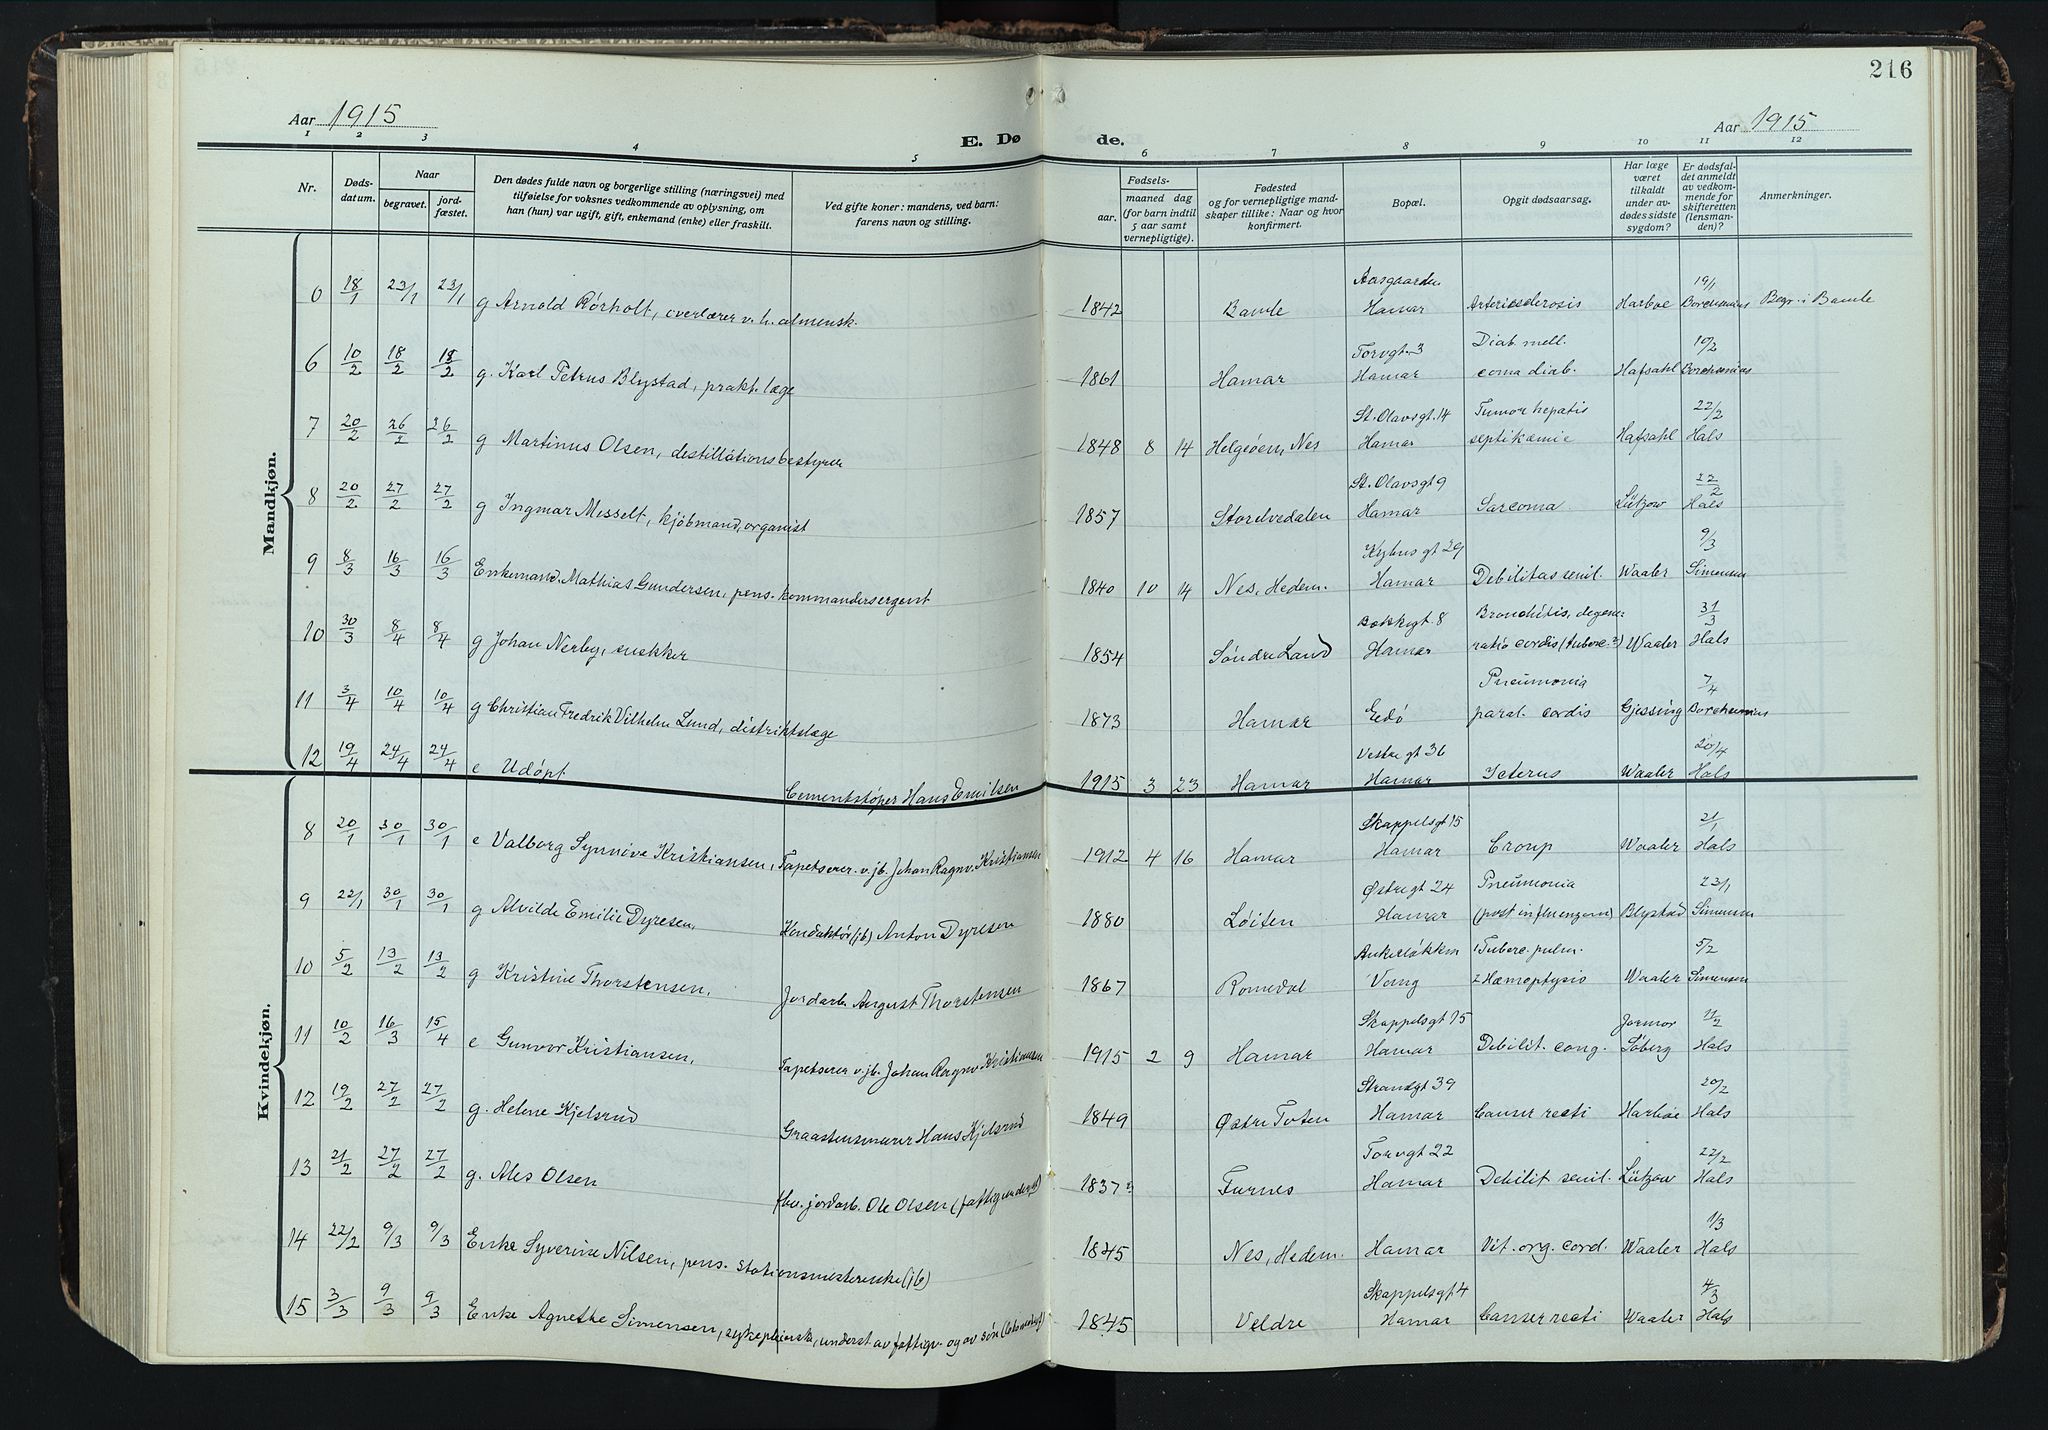 216
Aar 1915
E. Dø de.
Aar 1915
1 2 3 4 5 6 7 8 9 10 11 12
Nr.
Døds-
datum.
Naar
begravet.
jord-
fæstet.
Den dødes fulde navn og borgerlige stilling (næringsvei) med
tilføielse for voksnes vedkommende av oplysning, om
han (hun) var ugift, gift, enkemand (enke) eller fraskilt.
Ved gifte koner: mandens, ved barn:
farens navn og stilling.
Fødsels-
aar.
maaned dag
(for barn indtil
5 aar samt
vernepligtige).
Fødested
og for vernepligtige mand-
skaper tillike: Naar og hvor
konfirmert.
Bopæl.
Opgit dødsaarsag.
Har læge
været
tilkaldt
under av-
dødes sidste
sygdom?
Er dødsfal-
det anmeldt
av vedkom-
mende for
skifteretten
(lensman-
den)?
Anmerkninger.
Mandkjøn.
0 18/1 23/1 23/1 g Arnold Rørholt, overlærer v. h. almensk. 1842 Bamle Aasgaarden Hamar Arteriosclerosis Harboe 19/1 Borchsenius Begr. i Bamle
6 10/2 18/2 18/2 g. Karl Petrus Blystad, prakt. læge 1861 Hamar Torvgt. 3 Hamar Diab. mell. coma diab. Hafsahl 10/2 Borchsenius
7 20/2 26/2 26/2 g Martinus Olsen, destillationsbestyrer 1848 8 14 Helgeøen, Nes St. Olavsgt. 14 Hamar Tumor hepatis septikæmie Hafsahl 22/2 Hals
8 20/2 27/2 27/2 g Ingmar Messelt, kjøbmand, organist 1857 Storelvedalen St. Olavsgt 9 Hamar Sarcoma Lützow 22/2 Hals
9 8/3 16/3 16/3 Enkemand Mathias Gundersen, pens. kommandersergent 1840 10 14 Nes, Hedem. gt 29 Hamar Debilitas senil. Waaler 9/3 Simensen
10 30/3 8/4 8/4 g Johan Nerby, snekker 1854 Søndre Land Bækkegt. 8 Hamar Bronchitis, degene- ratio cordis (tuberc.?) Waaler 31/3 Hals
11 3/4 10/4 10/4 g Christian Fredrik Vilhelm Lund, distriktslæge 1873 Hamar Edø Pneumonia paral. cordis Gjessing 7/4 Borchsenius
12 19/4 24/4 24/4 e Udøpt Cementstøper Hans Emilsen 1915 3 23 Hamar Vestre gt 36 Hamar Icterus Waaler 20/4 Hals
Kvindekjøn.
8 20/1 30/1 30/1 e Valborg Synnøve Kristiansen, Tapetserer. v. jb. Johan Ragnv. Kristiansen 1912 4 16 Hamar Skappelsgt 15 Hamar Croup Waaler 21/1 Hals
9 22/1 30/1 30/1 g Alvilde Emilie Dyresen, Konduktør (jb) Anton Dyresen 1880 Løiten Østregt 24 Hamar Pneumonia (post influenzam) Blystad 23/1 Simensen
10 5/2 13/2 13/2 g Kristine Thorstensen, Jordarb. August Thorstensen 1867 Romedal Ankerløkken Vang 1 Tuberc. pulm. 2 Hæmoptysis Waaler 5/2 Simensen
11 10/2 16/3 15/4 e Gunvor Kristiansen, Tapetserer v. jb. Johan Ragnv. Kristiansen 1915 2 9 Hamar Skappelsgt 15 Hamar Debilit. cong. Jormor Søberg 11/2 Hals
12 19/2 27/2 27/2 g. Helene Kjelsrud Graastensmurer Hans Kjelsrud 1849 Østre Toten Strandgt 39 Hamar Cancer recti Harboe 20/2 Hals
13 21/2 27/2 27/2 g. Ales Olsen fhv. jordarb. Ole Olsen (fattigunderst) 1837? Furnes Torvgt 22 Hamar Debilit senil. Lützow 22/2 Hals
14 22/2 9/3 9/3 Enke Syverine Nilsen, pens. stationsmesterenke (jb) 1845 Nes, Hedem. Hamar Vit. org. cord. Waaler 1/3 Hals
15 3/3 9/3 9/3 Enke Agnethe Simensen, sykepleierske, underst av fattigv. og av søn 1845 Veldre Skappelsgt 4 Hamar Cancer recti Waaler 4/3 Hals